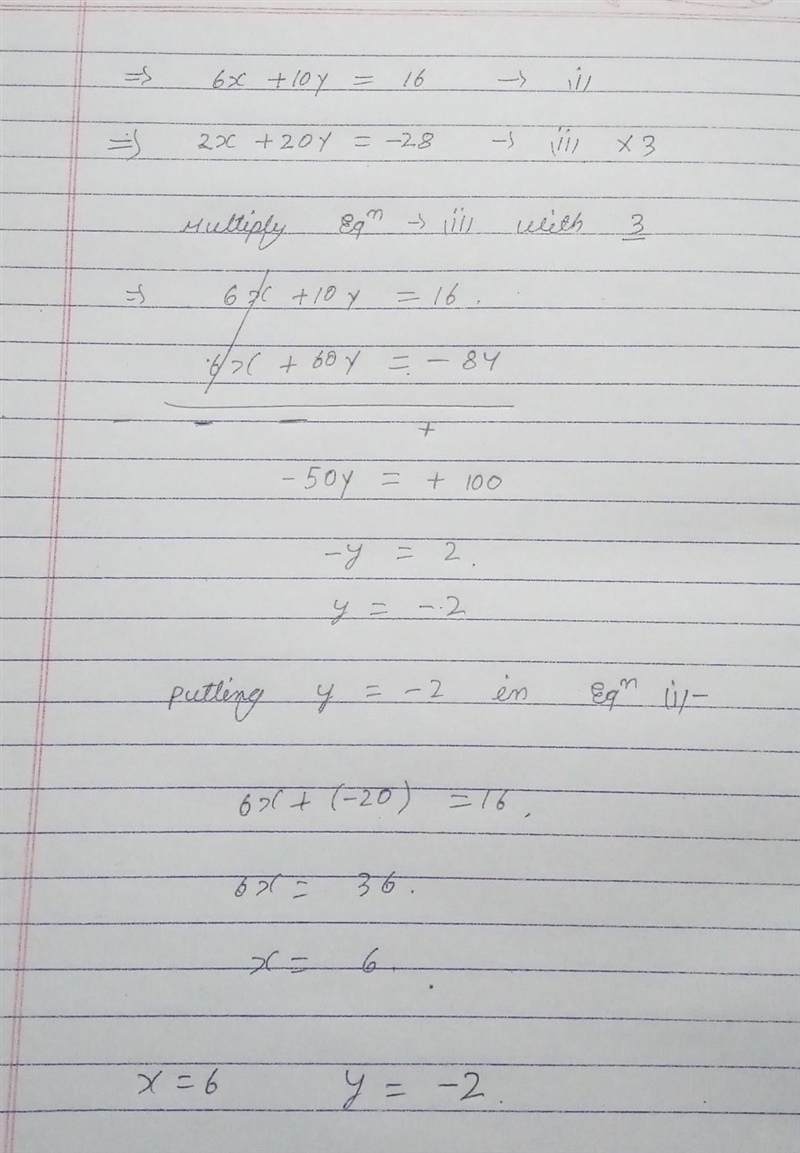 ⇒ 6x + 10y = 16 → (i)
⇒ 2x + 20y = -28 → (ii) × 3
Multiply Eqⁿ → (ii) with 3
⇒ 6x + 10y = 16.
6x + 60y = - 84
- - - +
- 50y = + 100
-y = 2.
y = -2
Putting y = -2 in Eqⁿ (i) -
6x + (-20) = 16.
6x = 36.
x = 6.
x = 6 y = -2.